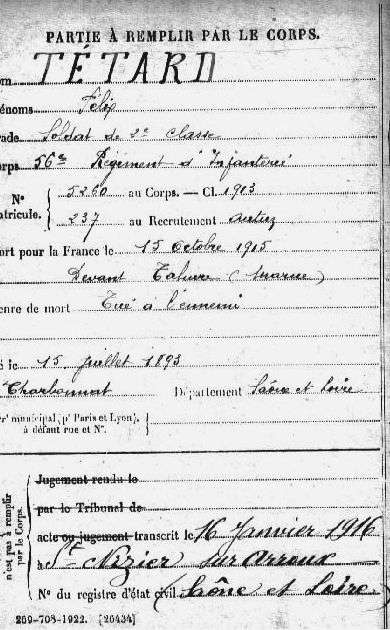 PARTIE À REMPLIR PAR LE CORPS.
om TÉTARD
énoms Félix
ade Soldat de 2e classe
orps 56me Régiment d'Infanterie
N° 5260 au Corps. — Cl. 1913
atricule. 237 au Recrutement Autun
ort pour la France le 15 octobre 1915
Devant Tahure (Marne)
enre de mort Tué à l'ennemi
é le 15 juillet 1893
Charbonnat Département Saône et Loire
r' municipal (p' Paris et Lyon),
à défaut rue et N°.
n'est pas à remplir
par le Corps.
Jugement rendu le
par le Tribunal de
acte ou jugement transcrit le 16 Janvier 1916
à St Nizier sur Arroux
N° du registre d'état civil (Saône et Loire)
269-708-1922. [26434]